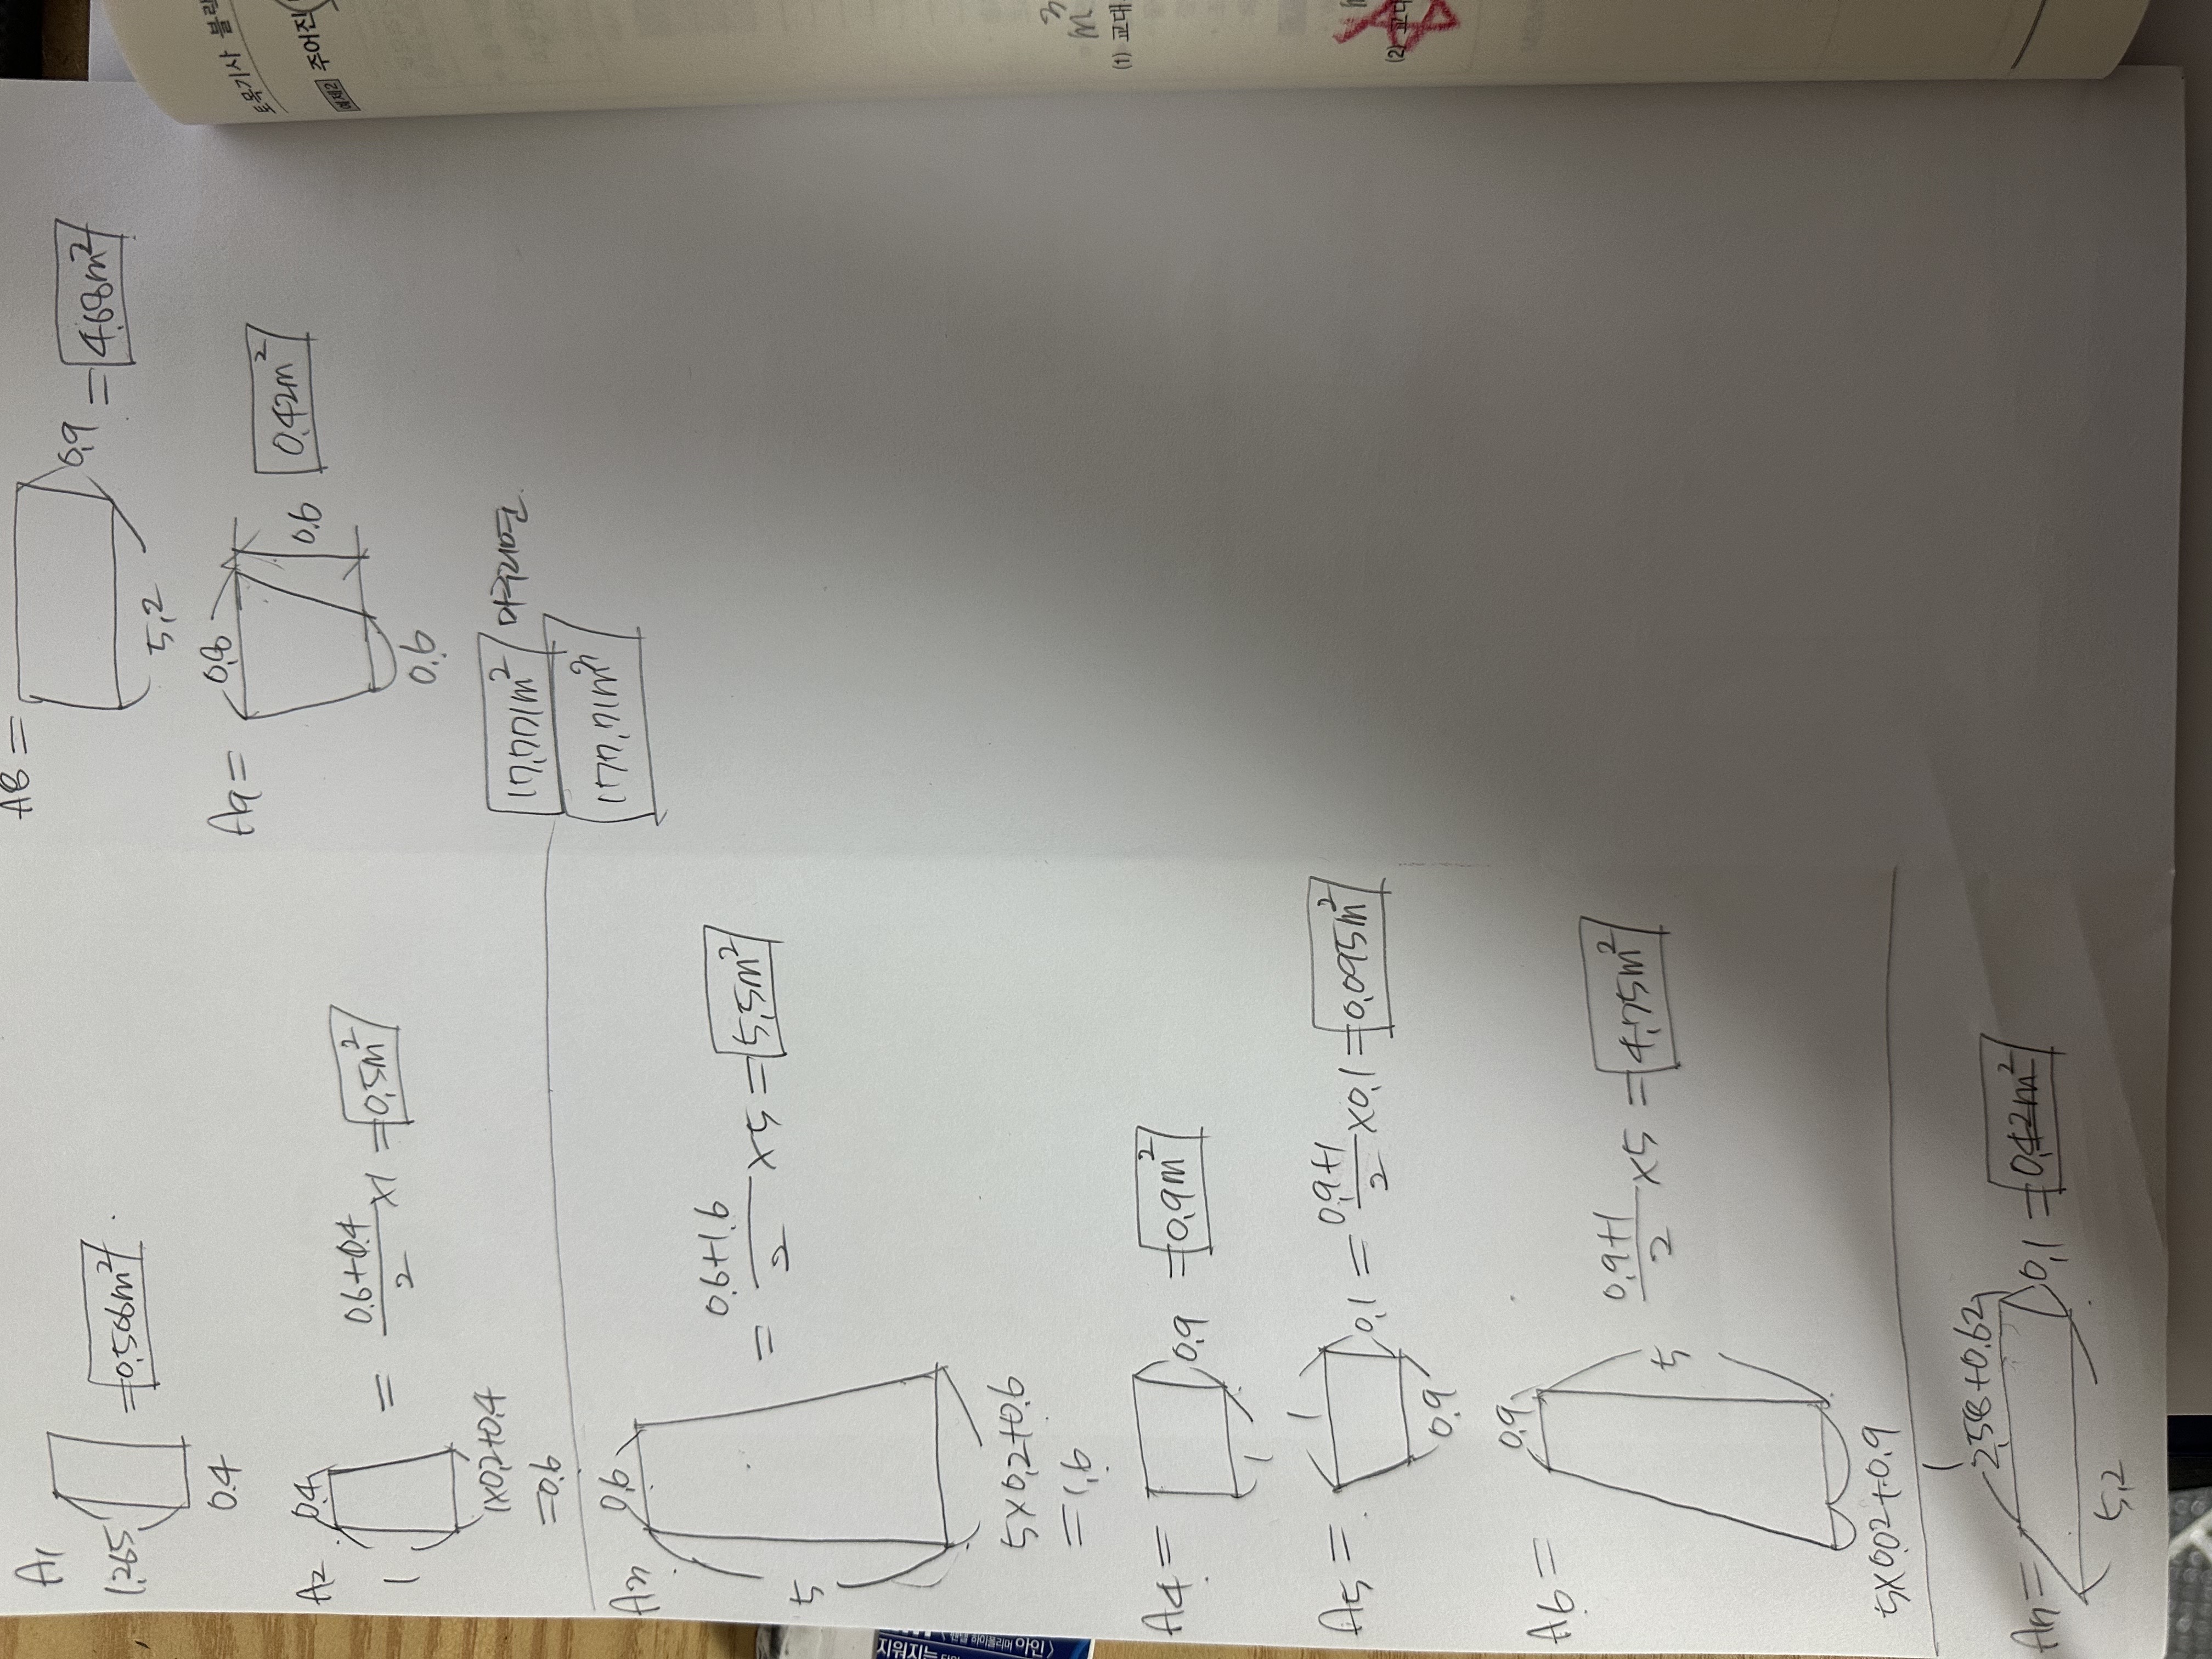 A1
1.265
0.4
=0.506m²
A2
0.4
1
1×0.2+0.4
=0.6
= 0.6+0.4 / 2 ×1 = 0.5m²
A3
0.6
5
5×0.2+0.6
=1.6
= 0.6+1.6 / 2 ×5 = 5.5m²
A4=
0.9
1
=0.9m²
A5=
1
0.1
0.9
= 0.9+1 / 2 ×0.1 = 0.095m²
A6=
0.9
5
5×0.02+0.9
0.9+1 / 2 ×5 = 4.75m²
A7=
2.58+0.62
5.2
0.1
=0.42m²
A8=
5.2
0.9
=4.68m²
A9=
0.8
0.6
0.6
0.42m²
17.771m²
마구리면
177.71m³
토목기사 블랙
예제2 주어진
m³
(1) 교대
(2) 교대
지워지는
아인